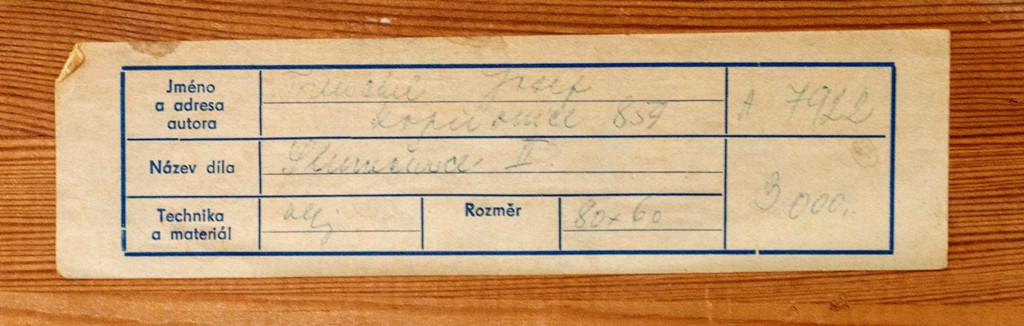 Jméno
a adresa
autora
Josef
Kopřivnice 859
A 7922
Název díla
II.
Technika
a materiál
olej
Rozměr
80x60
3 000,-